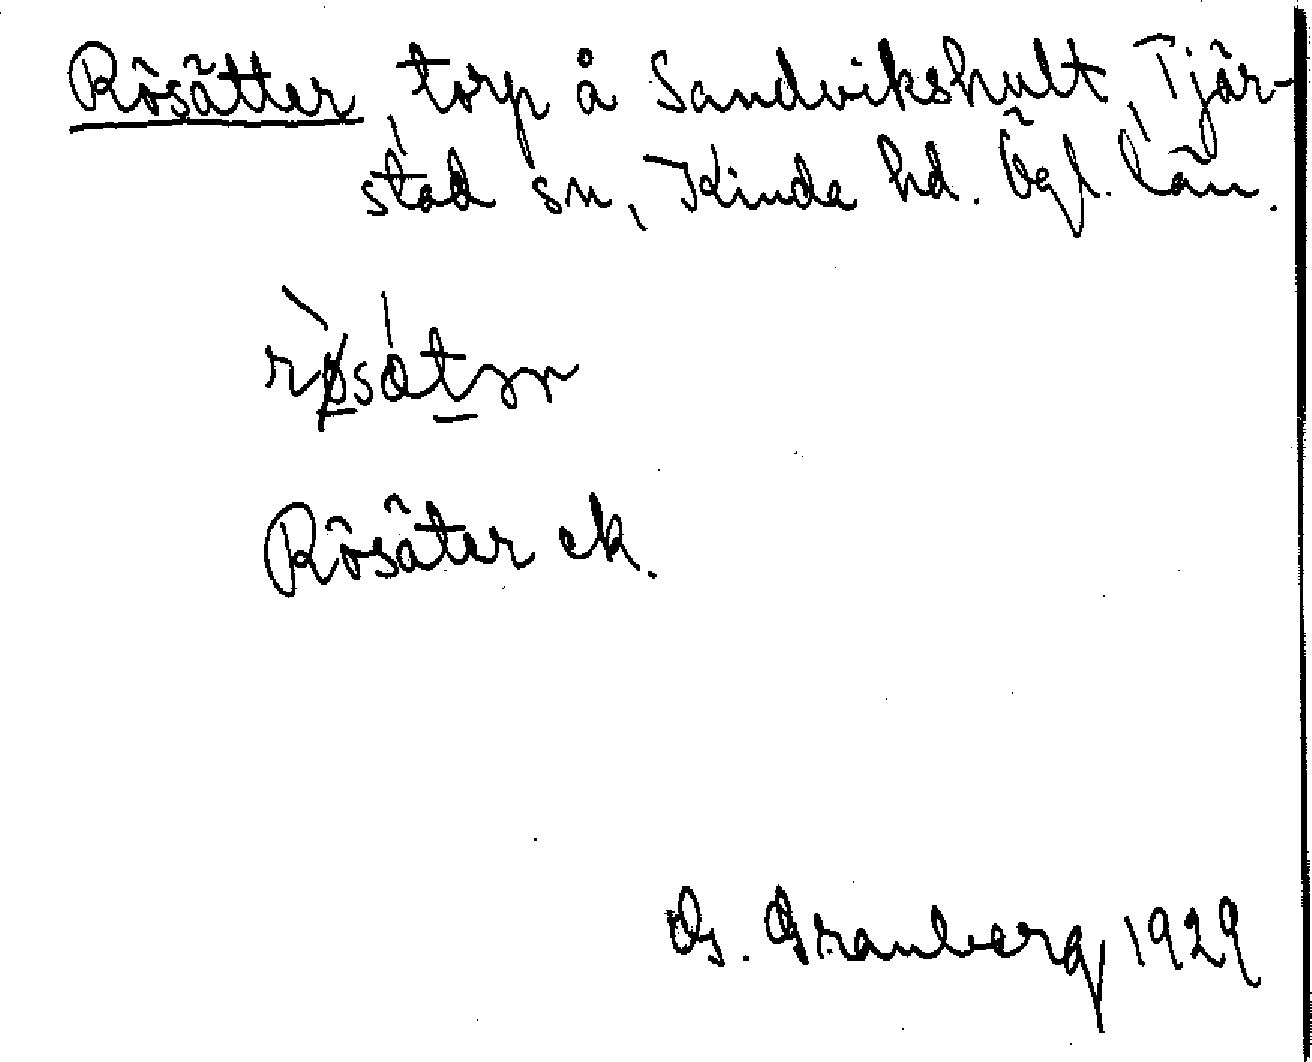 Rösätter, torp å Sandvikshult, Tjär-
stad sn, Kinda hd. Ögl. län.
Rösäter ek.
G. Granberg 1929